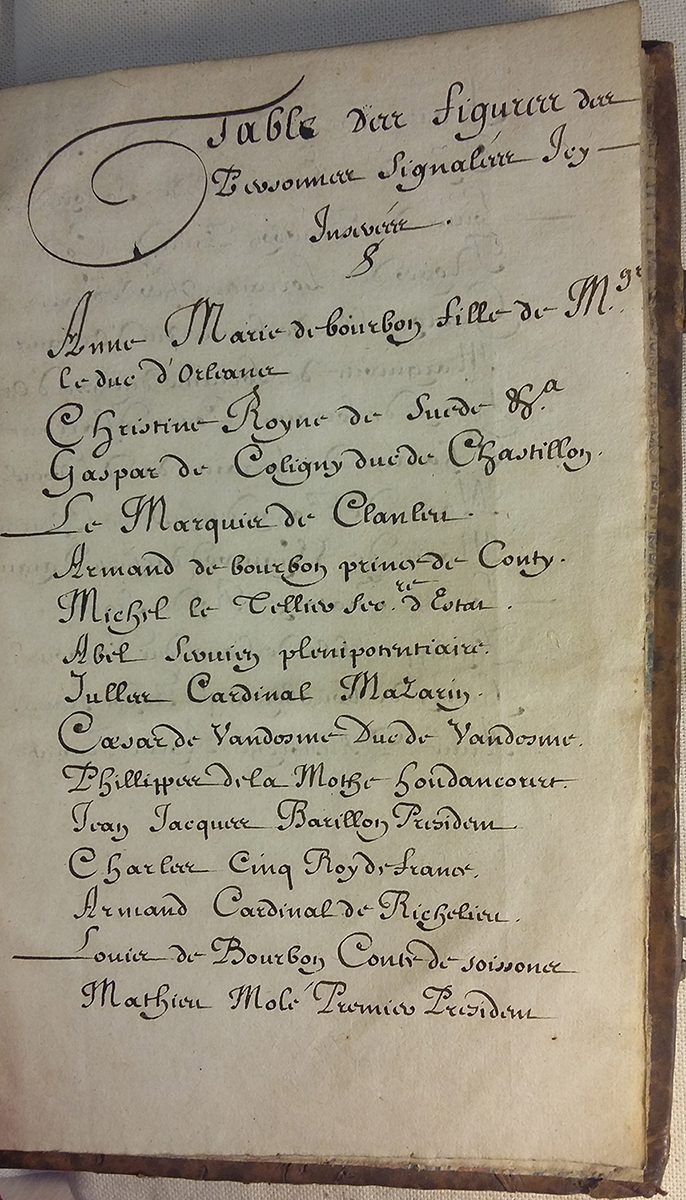 Table des figures des
Personnes Signalées Icy
Inserées.
Anne Marie de bourbon fille de M.gr
le duc d'Orleans
Christine Royne de Suede &.a
Gaspar de Coligny duc de Chastillon.
Le Marquis de Clanleu.
Armand de bourbon prince de Conty.
Michel le Tellier Sec.re d'Estat.
Abel Servien plenipotentiaire.
Julles Cardinal Mazarin.
Cæsar de Vandosme Duc de Vandosme.
Phillippes de la Mothe houdancourt.
Jean Jacques Barillon President
Charles Cinq Roy de france.
Armand Cardinal de Richelieu.
Louis de Bourbon Conte de soissons
Mathieu Molé Premier President